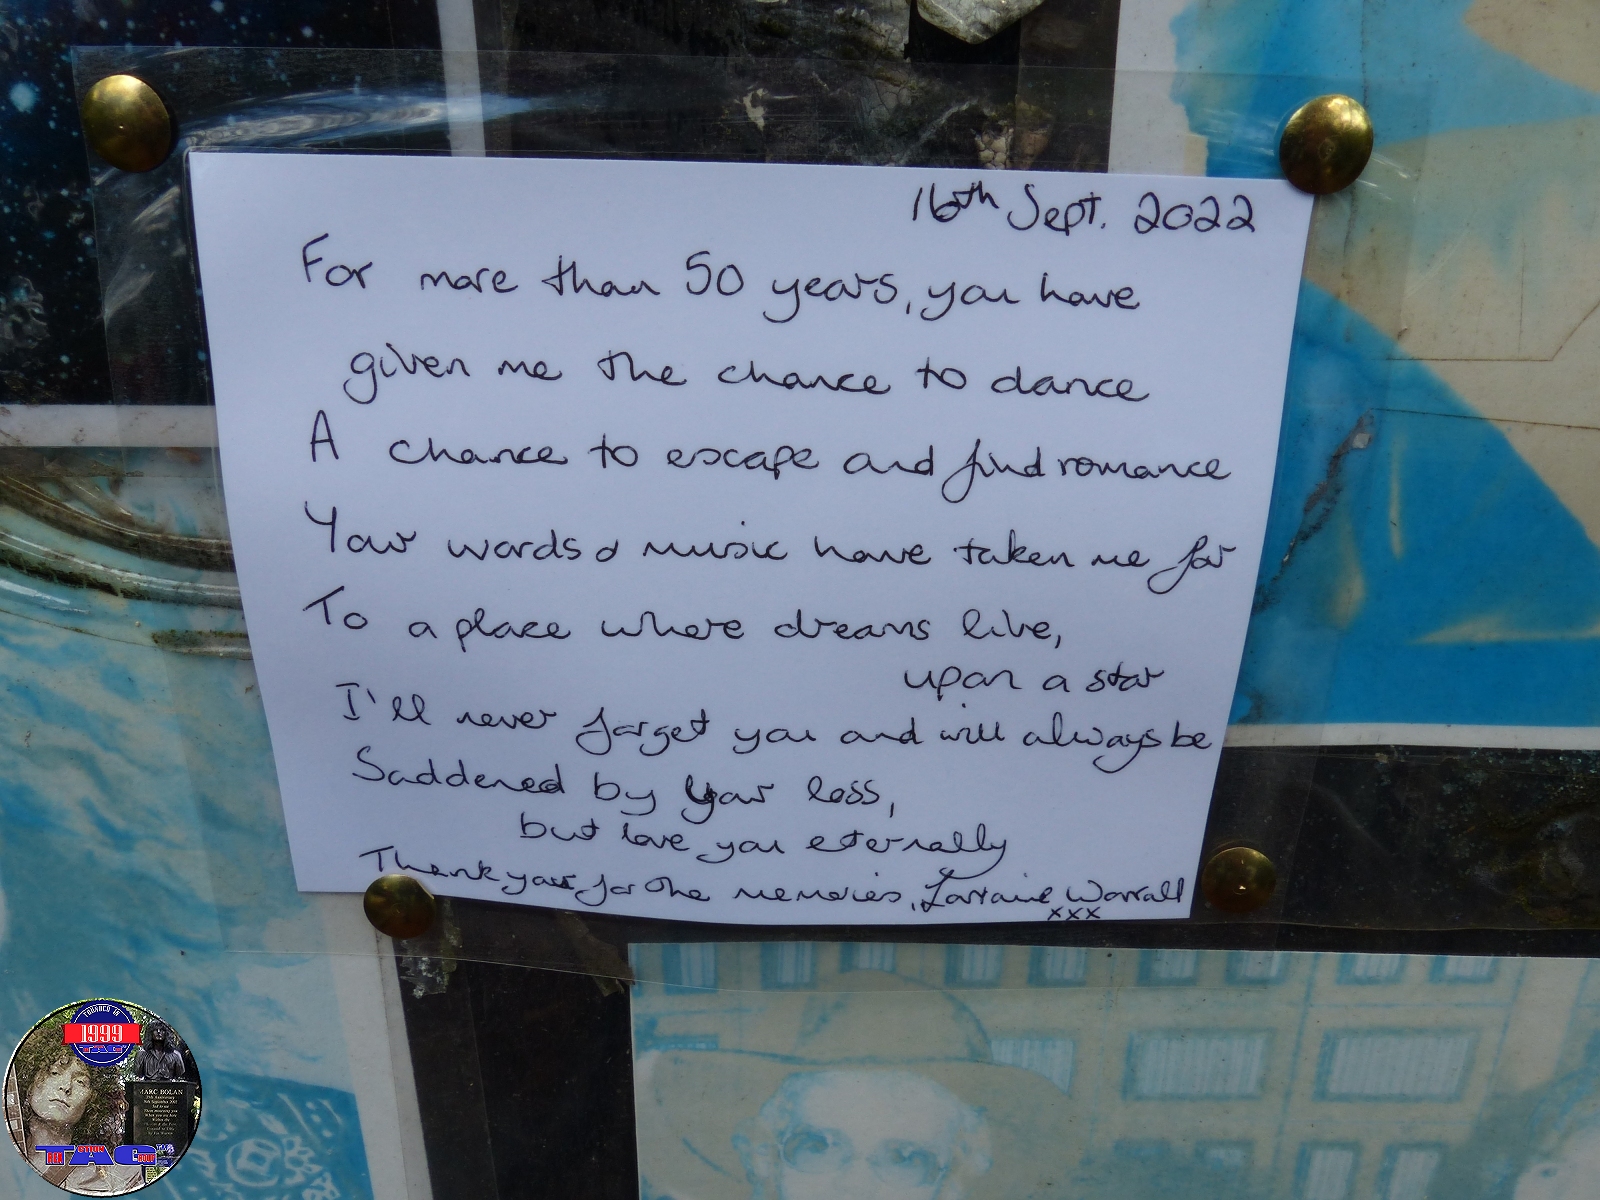 16th Sept. 2022
For more than 50 years, you have
given me the chance to dance
A chance to escape and find romance
Your words & music have taken me far
To a place where dreams live,
upon a star
I'll never forget you and will always be
Saddened by your loss,
but love you eternally
Thank you for the memories, Lorraine Worrall
xxx
FOUNDED IN
1999
TAG
MARC BOLAN